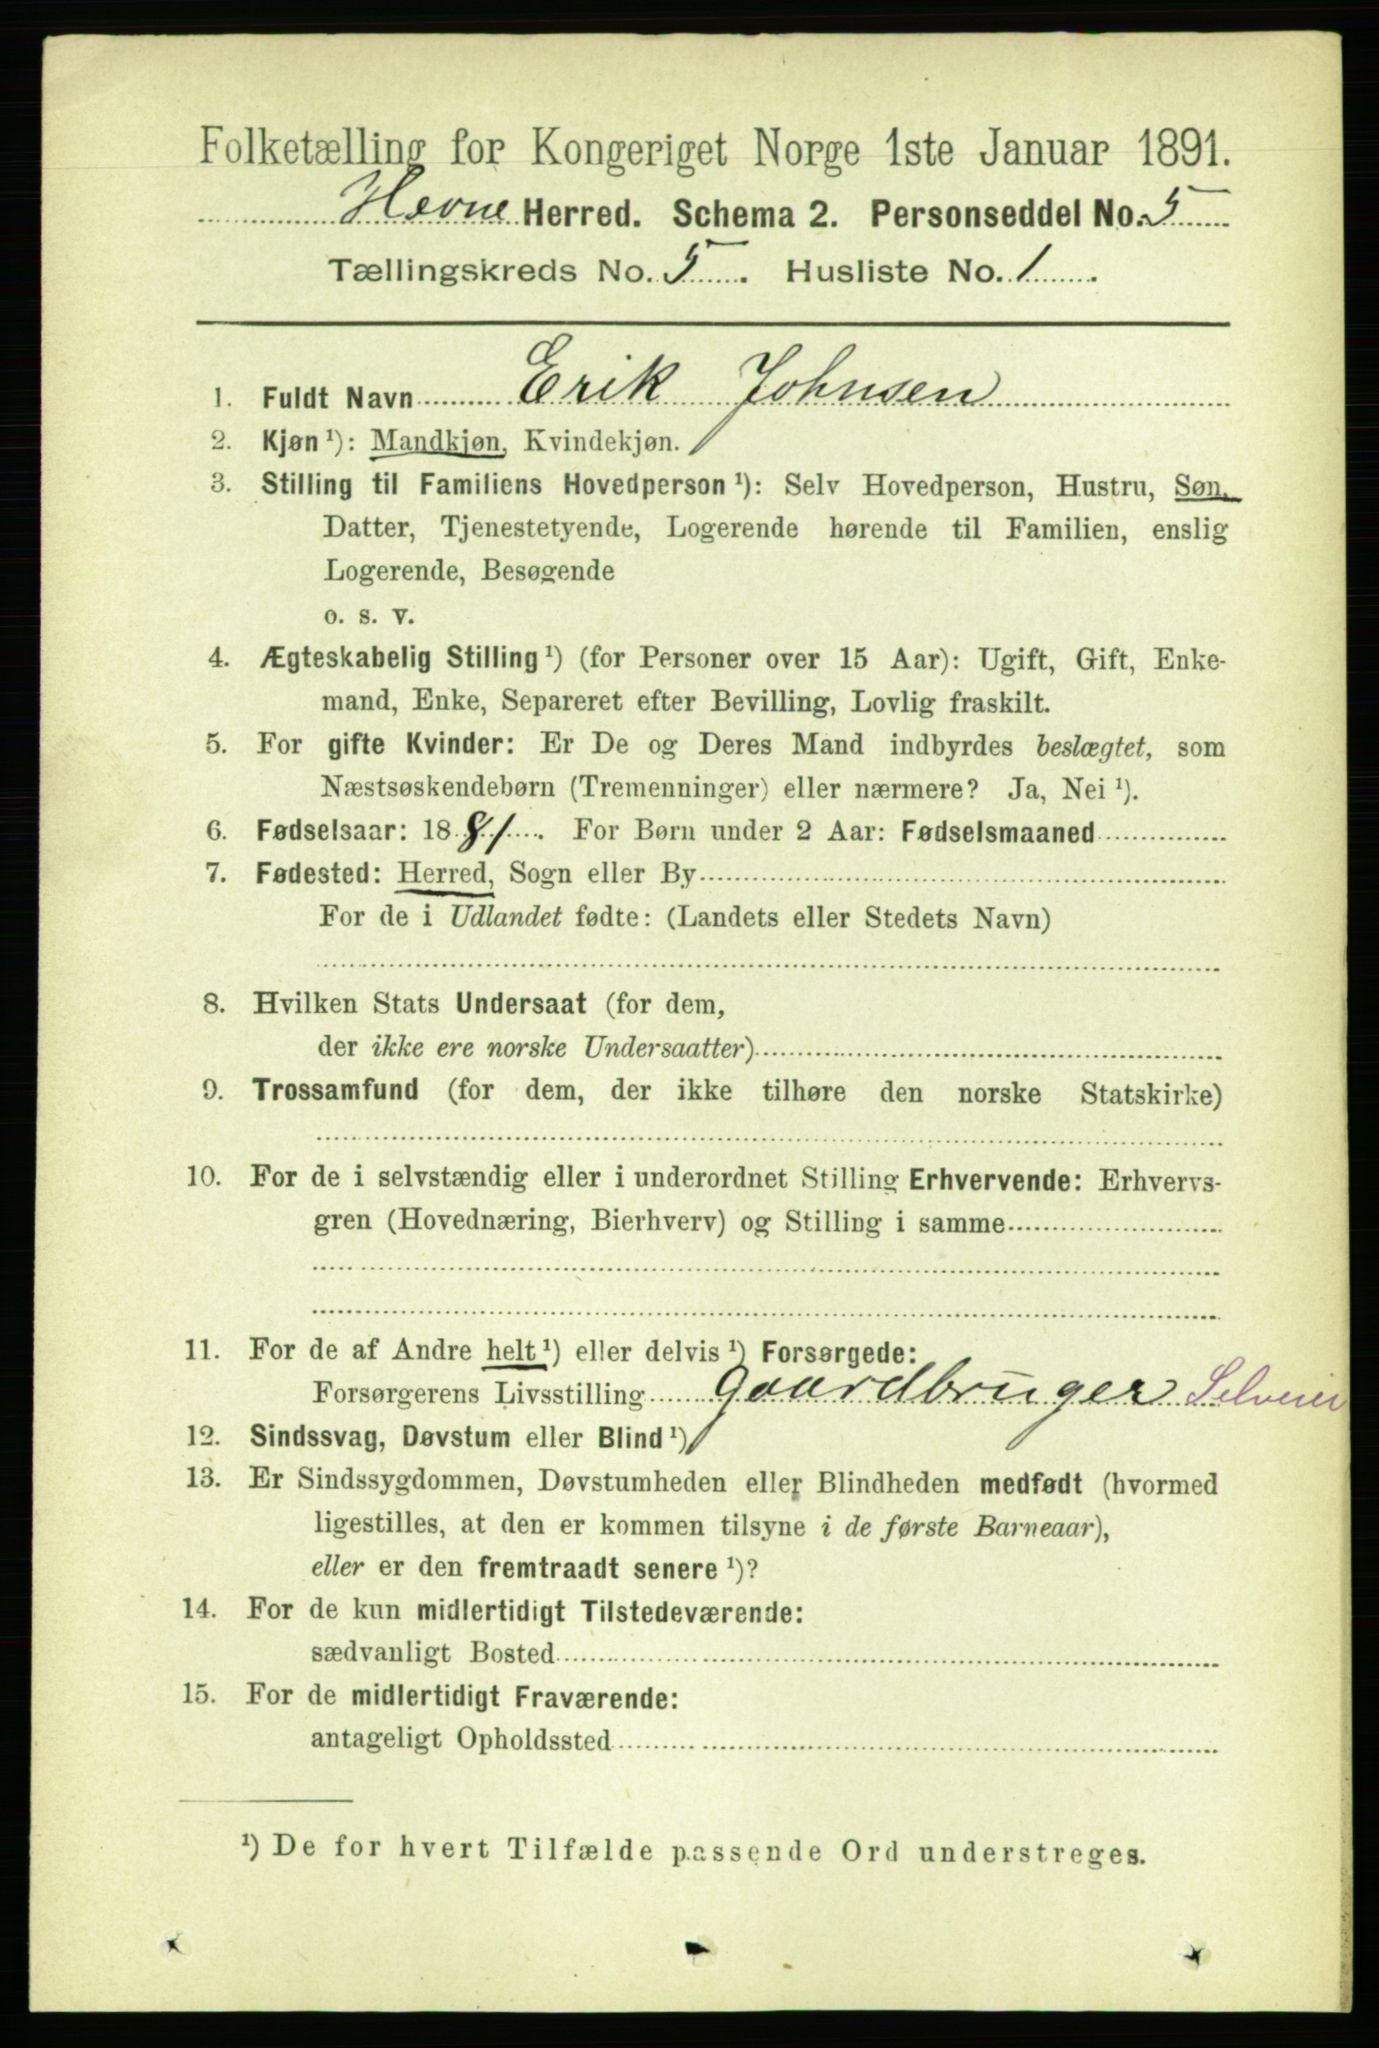 Folketælling for Kongeriget Norge 1ste Januar 1891.
Hevne Herred. Schema 2. Personseddel No. 5
Tællingskreds No. 5. Husliste No. 1.
1. Fuldt Navn Erik Johnsen
2. Kjøn ¹): Mandkjøn, Kvindekjøn.
3. Stilling til Familiens Hovedperson ¹): Selv Hovedperson, Hustru, Søn,
Datter, Tjenestetyende, Logerende hørende til Familien, enslig
Logerende, Besøgende
o. s. v.
4. Ægteskabelig Stilling ¹) (for Personer over 15 Aar): Ugift, Gift, Enke-
mand, Enke, Separeret efter Bevilling, Lovlig fraskilt.
5. For gifte Kvinder: Er De og Deres Mand indbyrdes beslægtet, som
Næstsøskendebørn (Tremenninger) eller nærmere? Ja, Nei ¹).
6. Fødselsaar: 1881. For Børn under 2 Aar: Fødselsmaaned
7. Fødested: Herred, Sogn eller By
For de i Udlandet fødte: (Landets eller Stedets Navn)
8. Hvilken Stats Undersaat (for dem,
der ikke ere norske Undersaatter)
9. Trossamfund (for dem, der ikke tilhøre den norske Statskirke)
10. For de i selvstændig eller i underordnet Stilling Erhvervende: Erhvervs-
gren (Hovednæring, Bierhverv) og Stilling i samme
11. For de af Andre helt ¹) eller delvis ¹) Forsørgede:
Forsørgerens Livsstilling Gaardbruger Selveier
12. Sindssvag, Døvstum eller Blind ¹)
13. Er Sindssygdommen, Døvstumheden eller Blindheden medfødt (hvormed
ligestilles, at den er kommen tilsyne i de første Barneaar),
eller er den fremtraadt senere ¹)?
14. For de kun midlertidigt Tilstedeværende:
sædvanligt Bosted
15. For de midlertidigt Fraværende:
antageligt Opholdssted
¹) De for hvert Tilfælde passende Ord understreges.